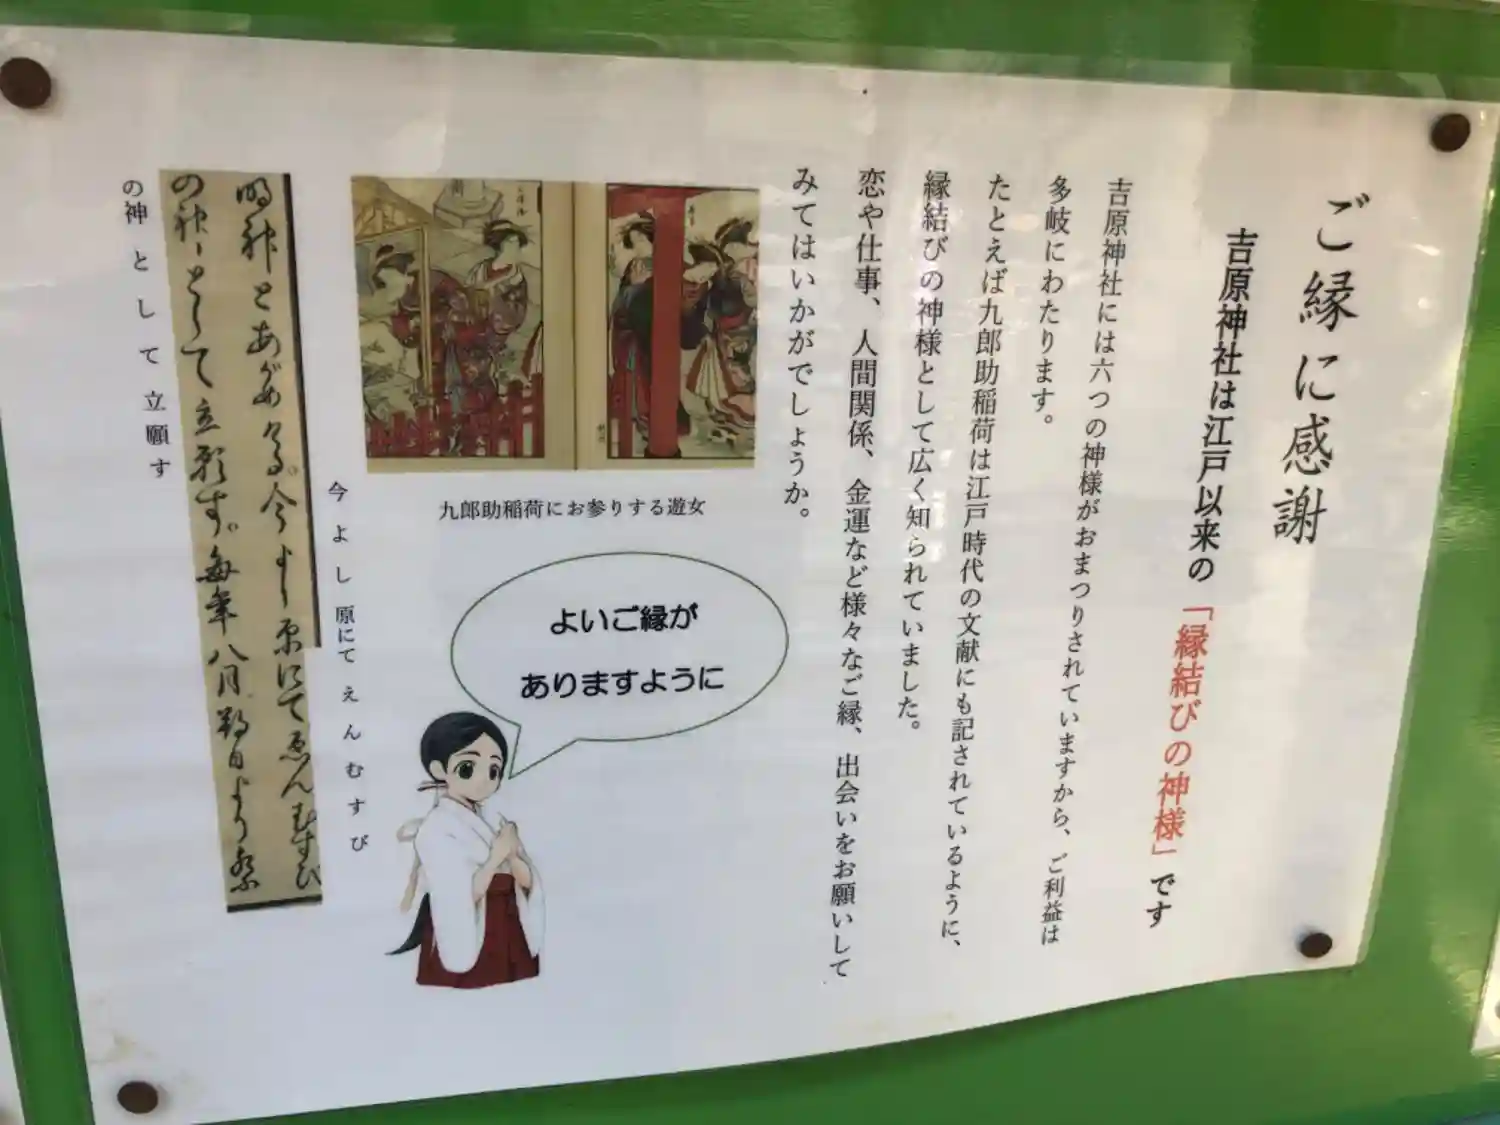 ご縁に感謝
吉原神社は江戸以来の「縁結びの神様」です
吉原神社には六つの神様がおまつりされていますから、ご利益は
多岐にわたります。
たとえば九郎助稲荷は江戸時代の文献にも記されているように、
縁結びの神様として広く知られていました。
恋や仕事、人間関係、金運など様々なご縁、出会いをお願いして
みてはいかがでしょうか。
九郎助稲荷にお参りする遊女
よいご縁が
ありますように
今よし原にてえんむすび
明神とあがめる。今よし原にてゑんむすび
の神として立願す。毎年八月朔日より祭
の神として立願す